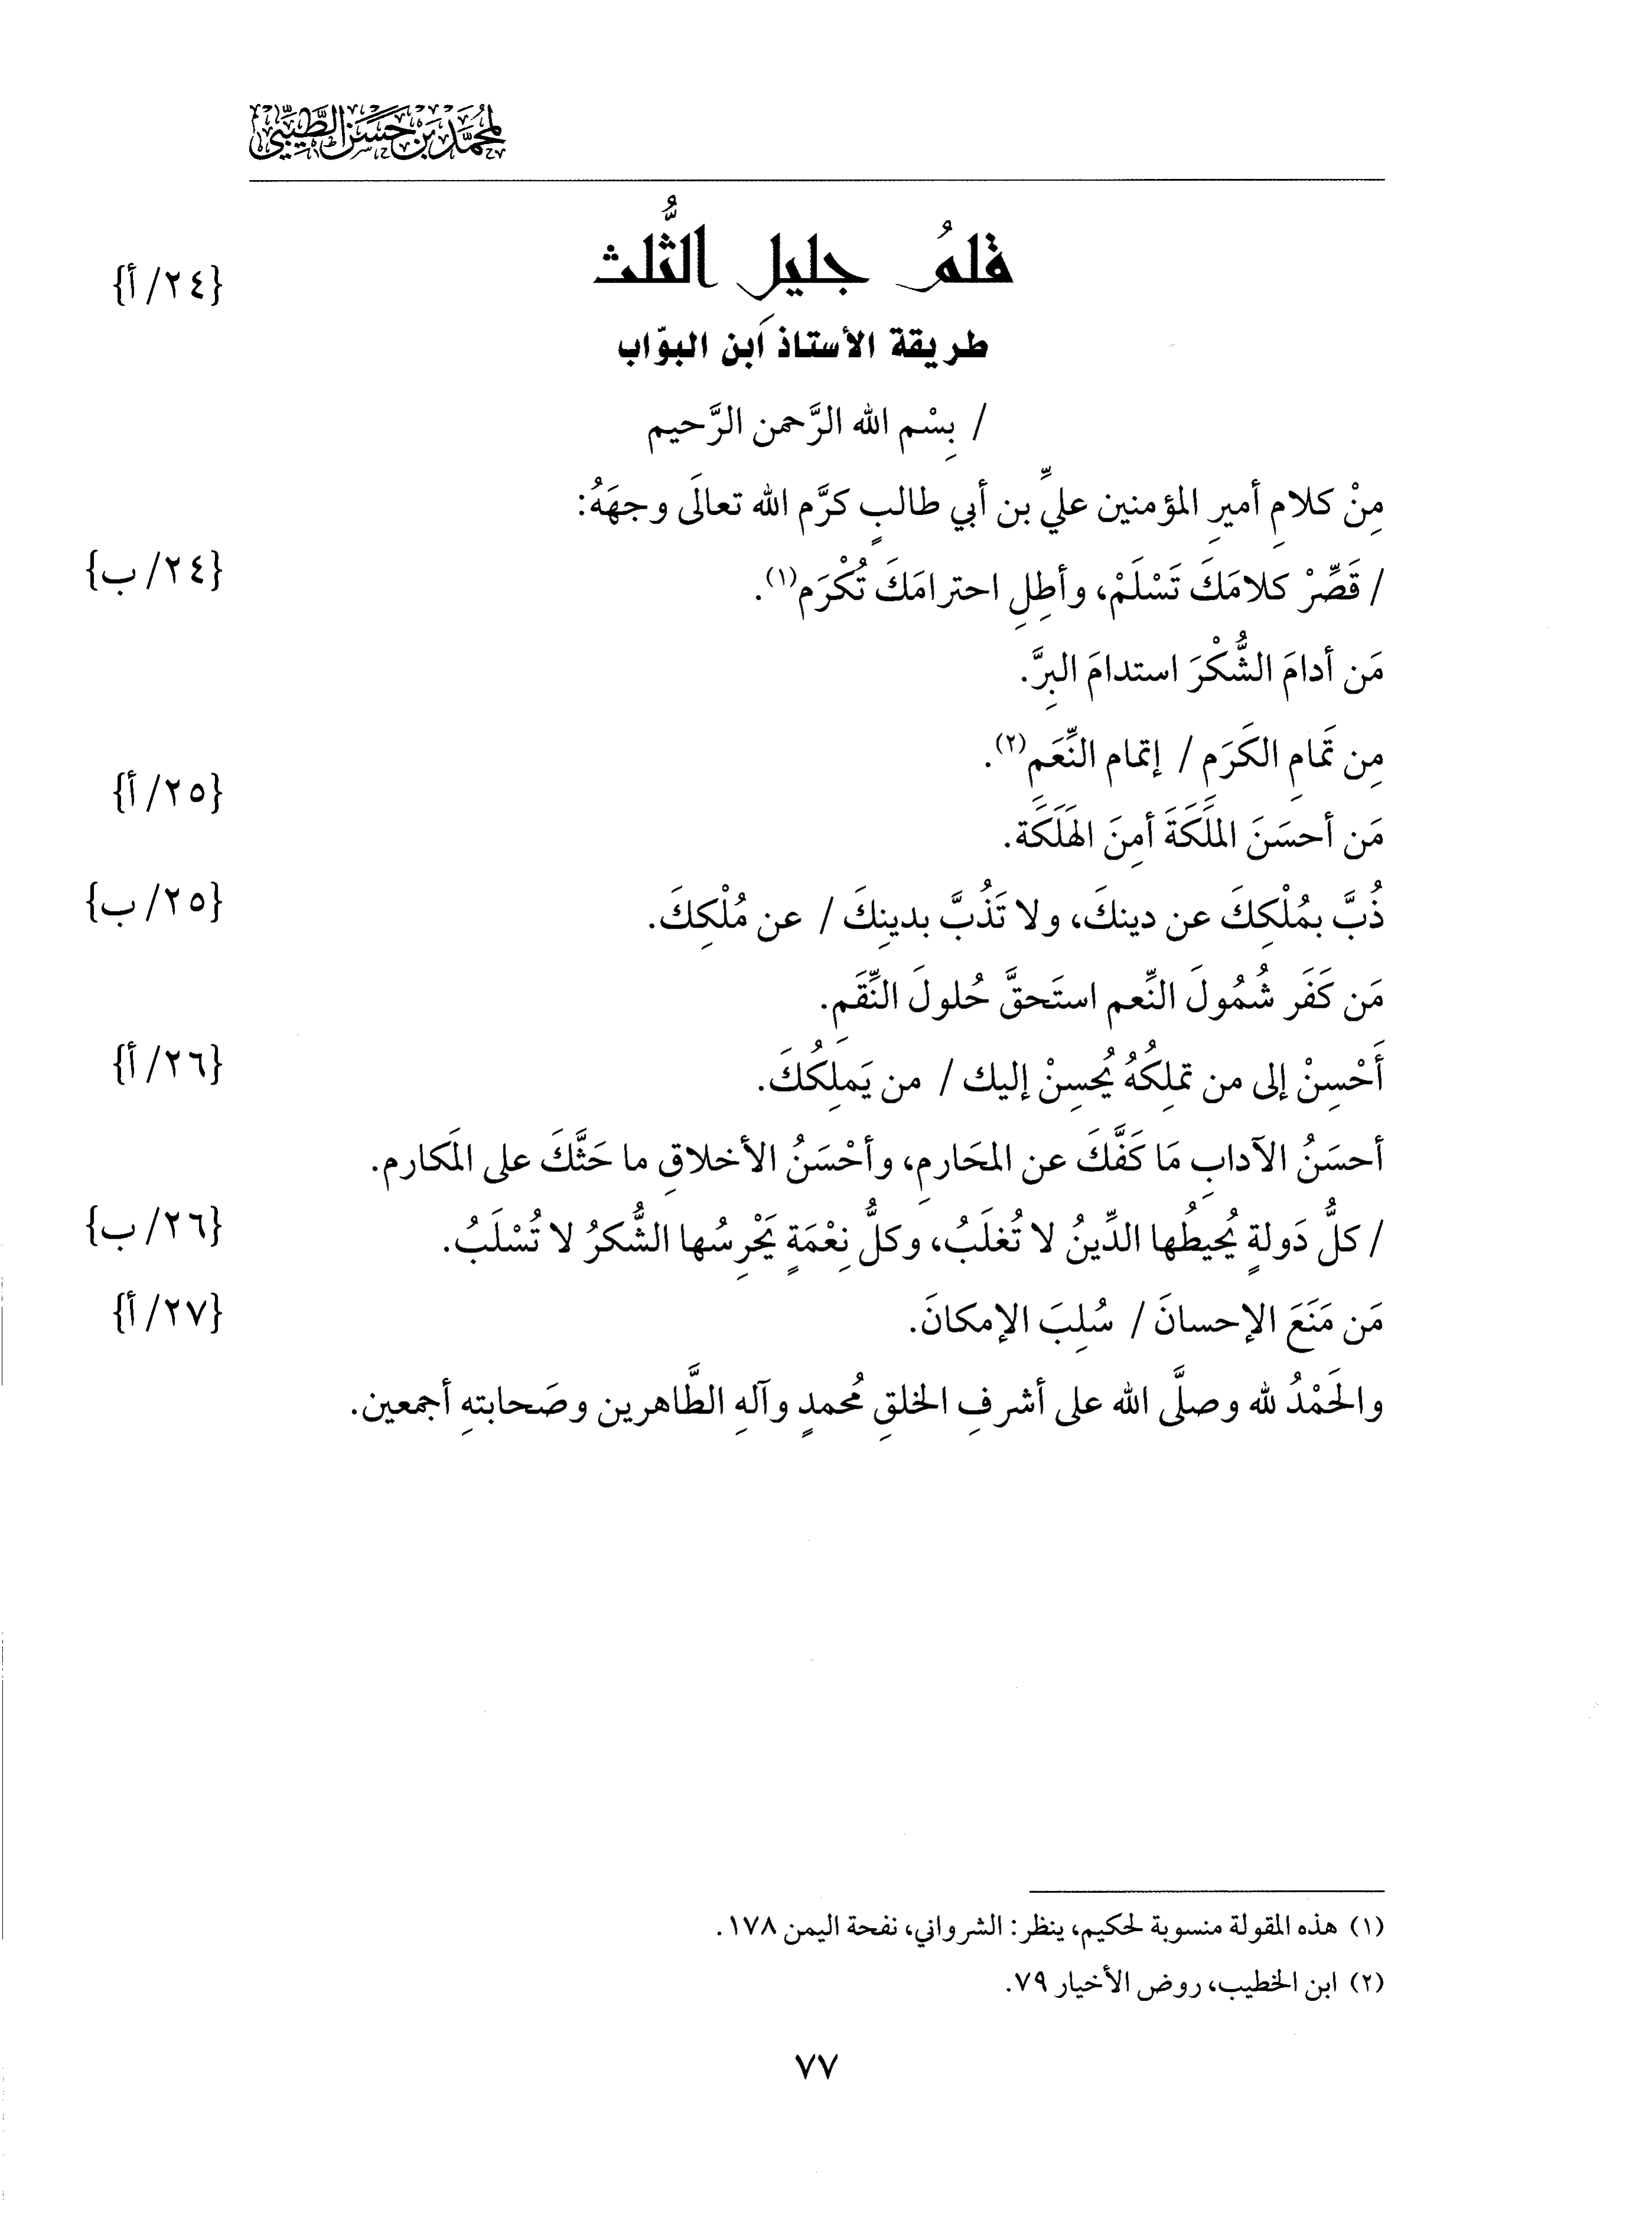 لمحمد بن حسن الطيبي
قلمُ جليل الثُّلث
{٢٤/ أ}
طريقة الأستاذ ابن البوّاب
/ بِسْم الله الرَّحمن الرَّحيم
مِنْ كلامِ أميرِ المؤمنين عليِّ بن أبي طالبٍ كرَّم الله تعالَى وجهَهُ:
/ قَصِّرْ كلامَكَ تَسْلَمْ، وأطِلِ احترامَكَ تُكْرَم(١).
{٢٤/ ب}
مَن أدامَ الشُّكْرَ استدامَ البِرَّ.
مِن تَمامِ الكَرَم / إتمام النِّعَم(٢).
{٢٥/ أ}
مَن أحسَنَ المَلَكَةَ أمِنَ الهَلَكَة.
ذُبَّ بمُلْكِكَ عن دينكَ، ولا تَذُبَّ بدينِكَ / عن مُلْكِكَ.
{٢٥/ ب}
مَن كَفَر شُمُولَ النِّعم استَحقَّ حُلولَ النِّقَمِ.
أَحْسِنْ إلى من تملِكُهُ يُحسِنْ إليك / من يَملِكُكَ.
{٢٦/ أ}
أحسَنُ الآدابِ مَا كَفَّكَ عن المحَارمِ، وأحْسَنُ الأخلاقِ ما حَثَّكَ على المَكارم.
/ كلُّ دَولةٍ يُحيطُها الدِّينُ لا تُغلَبُ، وكلُّ نِعْمَةٍ يَحْرِسُها الشُّكرُ لا تُسْلَبُ.
{٢٦/ ب}
مَن مَنَعَ الإحسانَ / سُلِبَ الإمكانَ.
{٢٧/ أ}
والحَمْدُ لله وصلَّى الله على أشرفِ الخلقِ مُحمدٍ وآلهِ الطَّاهرين وصَحابتهِ أجمعين.
(١) هذه المقولة منسوبة لحكيم، ينظر: الشرواني، نفحة اليمن ١٧٨.
(٢) ابن الخطيب، روض الأخيار ٧٩.
٧٧